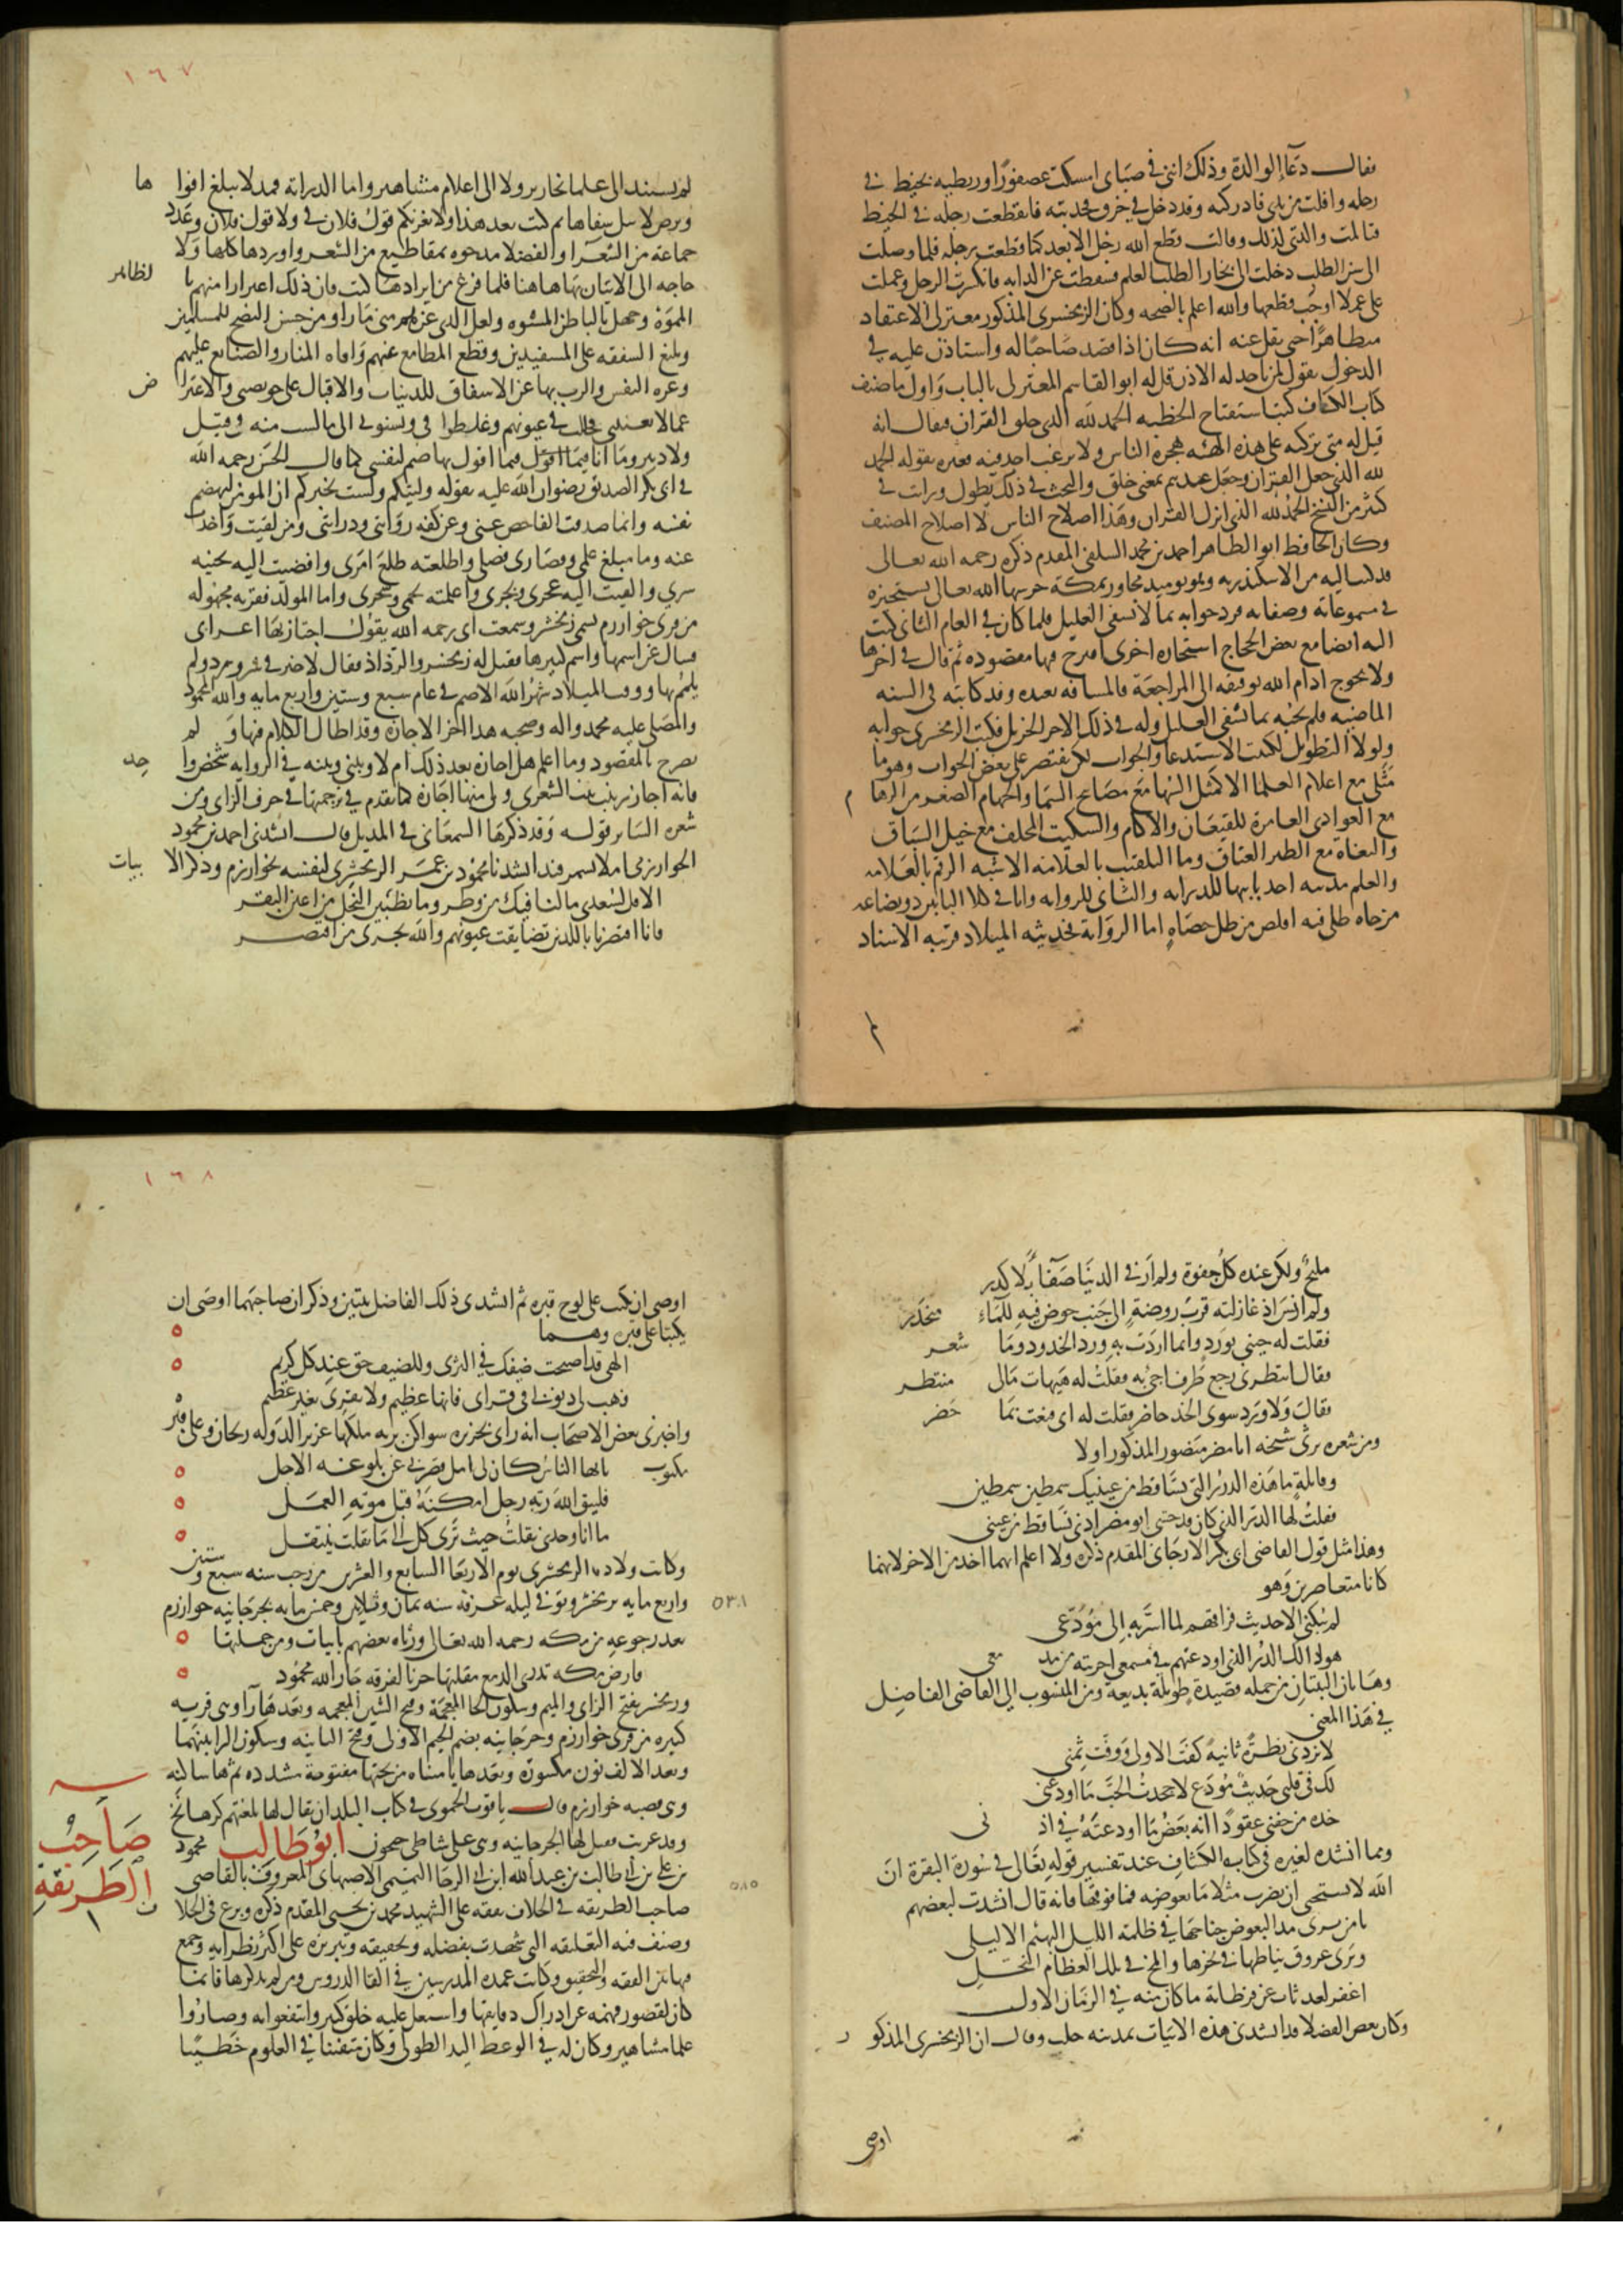 فقال دعآ الوالدة وذلك انني في صباي امسكت عصفورًا وربطيه بخيط في
رجله وافلت من يدي فادركته وقد دخل في خرق فجذبته فانقطعت رجله في الخيط
فتالمت والدتي لذلك وقالت قطع الله رجل الابعد كما قطعت رجله فلما وصلت
الى سن الطلب دخلت الى بخارا لطلب العلم فسقطت عن الدابه فانكسرت الرجل وعملت
على عملا اوجب قطعها والله اعلم بالصحه وكان الزمخشري المذكور معتزلي الاعتقاد
متظاهرًا حتى نقل عنه انه كان اذا قصد صاحبًا له واستاذن عليه في
الدخول يقول لمن ياخذ له الاذن قل له ابو القاسم المعتزلي بالباب وَاول ما صنف
كتاب الكشاف كتب استفتاح الخطبه الحمد لله الذي خلق القران فقال انه
قيل له متى تركته على هذه الهيئه هجره الناس ولا يرغب احد فيه فغيره بقوله الحمد
لله الذي جعل القران وجعل عندهم بمعنى خلق والبحث في ذلك يطول ورات في
كثير من النسخ الحمد لله الذي انزل القران وهذا اصلاح الناس لا اصلاح المصنف
وكان الحافظ ابو الطاهر احمد بن محمد السلفي المقدم ذكره رحمه الله تعالى
قد كتب اليه من الاسكندريه وهو يوميد مجاور بمكة حرسها الله تعالى يستجيزه
في مسموعاته ومصنفاته فرد جوابه بما لا يشفي العليل فلما كان في العام الثاني كتب
اليه ايضا مع بعض الحجاج استجازه اخرى اقترح فيها مقصوده ثم قال في اخرها
ولا يحوج ادام الله توفيقه الى المراجعَة فالمسافه بعيده وقد كاتبته في السنه
الماضيه فلم يجبه بما يشفي العليل وله في ذلك الاجر الجزيل فكتب الزمخشري جوابه
ولولا التطويل لكتبت الاستدعا والجواب لكن نقتصر على بعض الجواب وهو ما
مَثَلي مع اعلام العلما الا كمثل السُها مَعَ مصَابيح السَما والجهام الصفر من الرها م
مع الغوادي الغامرة للقيعَان والاكام والسكيت المخلف مع خيل السبَاق
والبغاة مع الطير العتاق وما التلقيب بالعلامه الا شبه الرقم بالعَلامه
والعلم مدينه احد بابيها الدرايه والثاني الروايه وانا في كلا البابين ذو بضاعه
مزجاه ظلي فيه اقلص من ظل حصَاهٍ اما الروَاية فحديثه الميلاد قريبه الاسناد
لم
١٦٧
لم يستند الى علما نحارير ولا الى اعلام مشاهير واما الدرايه فثمد لا يبلغ افوا ها
وبرض لا يبل شفاها ثم كتب بعد هذا ولا يغرنكم قول فلان في ولا قول فلان وعَدد
جماعَة من الشعَرا والفضلا مدحوه بمقاطيع من الشعر واوردها كلها وَلا
حاجه الى الاتيان بهَا هاهنا فلما فرغ من ايرادهَا كتب فان ذلك اغترار منهم با لظاهر
المموَّه وجهل بالباطن المشوه ولعل الذي غرّهم مني مَا راوا من حسن النصح للمسلمين
وبليغ الشفقه على المستفيدين وقطع المطامع عنهم وَافاده المبار والصنايع عليهم
وعزه النفس والرب بها عن الاسفاف للدنيات والاقبال على خويصتي والاعرا ض
عما لا يعنيني فجللت في عيونهم وغلطوا في ونسبوني الى ما لست منه في قبيل
ولا دبير ومَا انا فيمَا اقوَل بهاضم لنفسي كما قال الحسَن رحمه الله
في ابي بكر الصديق رضوان الله عليه بقوله وليتكم ولست بخيركم ان المومن ليهضم
نفسه وانما صدقت الفاحص عني وعن كنه روَايتي ودرايتي ومن لقيت وَاخذت
عنه وما مبلغ علمي وقصارى فضلي واطلعته طلعَ امري وافضيت اليه بخبيه
سري والقيت اليه عجري وبجري واعلمته نجمي وشجري واما المولد فقريه مجهوله
من قرى خوارزم تسمى زمخشر وسمعت ابي رحمه الله يقول اجتاز بهَا اعرابي
فسال عن اسمها واسم كبيرها فقيل له زمخشر والرداد فقال لا خير في شر ورد ولم
يلمم بها ووقت الميلاد شهر الله الاصم في عام سبع وستين واربع مايه والله المحمود
والمصلى عليه محمد واله وصحبه هذا اخر الاجازة وقد اطال الكلام فيها وَ لم
يصرح بالمقصود وما اعلم هل اجازه بعد ذلك ام لا وبيني وبينه في الروايه شخص وا حد
فانه اجاز زينب بنت الشعري ولي منها اجازة كما تقدم في ترجمتها في حرف الزاي ومن
شعره السَاير قوله وَقد ذكرهَا السمعَاني في المذيل قال انشدني احمد بن محمود
الخوارزمي املا بسمرقند انشدنا محمود بن عمَر الزمخشري لنفسه بخوارزم وذكر الا بيات
الا قل لسُعدى ما لنا فيك من وطر وما تطبين النجل من اعين البقر
فانا اقتصرنا بالذين تضايقت عيونهم والله يجزي من اقتصر
مليحٌ ولكن عنده كلُ جفوة ولم اَرَ في الدنيَا صَفاءً بلا كدرِ
ولم انسَ اذ غازلته قربَ روضةٍ الى جَنب حوض فيهِ للماء منحَدر
فقلت له جيني بوَرد وانما اردَت بهِ ورد الخدود ومَا شعر
فقال انتظرني رجع طَرف اجي به فقلتُ له هَيهات مَالي منتظر
فقالَ وَلا وَرد سوى الخد حاضر فقلت له اني قنعت بمَا حَضر
ومن شعره يرثي شيخه ابا مضر منصور المذكور اولا
وقايلةٍ ما هَذه الدررُ التي تسَاقط من عينيك سمطين سمطين
فقلتُ لها الدر الذي كان قد حشى ابو مضر اذني تسَاقط من عيني
وهذا مثل قول القاضي ابي بكر الارجاني المقدم ذكره ولا اعلم ايهما اخذ من الاخر لانهما
كانا متعاصرين وَهو
لم يُبكني الا حديث فراقهم لما اسَرَّ به الى مُوَدّعي
هو ذلك الدُر الذي اودعتهم في مسمعي اجريته من مد معي
وهَاتان البيتان من جمله قصيدةٍ طويلَة بديعَة ومن المنسُوب الى القاضي الفاضِل
في هَذا المعني
لا تزدني نظرَة ثانيةً كفَت الاولى وَوفَت ثمني
لك في قلبي حَديثُ مُودَع لا جحدتُ الحبَ مَا اودعني
خذه من جفني عقودًا انه بَعضُ مَا اودعتَهُ في اذ ني
ومما انشده لغيره في كتاب الكشاف عند تفسير قوله تعَالى في سُورة البقرة انَ
اللهَ لا يستحيي ان يضرب مثلا مَا بعوضه فما فوقها فانه قال انشدت لبعضهم
يا من يرى مد البعوض جناحهَا في ظلمَة الليل البهيْم الاليلِ
ويرَى عروق نياطها في نحرها والمخ في تلك العظام النحَّلِ
اغفر لعبد تاب عن فرطاته ما كان منه في الزمَان الاول
وكان بعض الفضلا قد انشدني هذه الابيَات بمدينه حلب وقال ان الزمخشري المذكو ر
اوصى
١٦٨
اوصى ان تكتب على لوح قبره ثم انشدني ذلك الفاضل بيتين وذكر ان صَاحبهما اوصَى ان
يكتبا على قبره وهما
الهي قد اصبحت ضيفك في الثرى وللضيف حق عند كل كريم
فهب لي ذنوبي في قراي فانها عظيم ولا يقرى بغير عظيم
واخبرني بعض الاصحَاب انه راى بجزيره سواكن تربه ملكها عزيز الدَوله ريحان وعلى قبره
مكتوب يا ايها الناسُ كان لي امل قصّر بي عن بلوغه الاجل
فليتق اللهَ ربّه رجل امكنَهُ قبل موته العمَل
ما انا وحدي نقلتُ حيث ترَى كل الى مَا نقلت ينتقل
وكانت ولادة الزمخشري يوم الاربعَا السابع والعشرين من رجب سنه سبع وستين
واربع مايه بزمخشر وتوفي ليله عرفة سنه ثمان وثلاثين وخمس مايه بجرجَانيه خوارزم
٥٣٨
بعد رجوعهِ من مكه رحمه الله تعالى ورثاه بعضهم بابيات ومن جملتها
فارض مكه تذري الدمع مقلتها حزنا لفرقه جَار الله محمُود
وزمخشر بفتح الزاي والميم وسكون الخا المعجمَة وفتح الشين المعجمه وبعدهَا رآ وهي قريه
كبيره من قرى خوارزم وجرجَانيه بضم الجيم الاولى وفتح الثانيه وسكون الرا بينهما
وبعد الالف نون مكسورة وبعدها يا مثناه من تحتها مفتوحة مشدده ثم ها ساكنه
وهي قصبه خوارزم قال ياقوت الحموي في كتاب البلدان يقال لها بلغتهم كركانج
وقد عربت فقيل لها الجرجانيه وهي على شاطى جيحون ابُوْطَالِب محمود
صَاحِبُ الطَريقَةِ
بن علي بن ابي طالب بن عبد الله ابن ابي الرجا التميمي الاصبهاني المعروف بالقاضي
٥٨٥
صاحب الطريقه في الخلاف تفقه على الشهيد محمد بن يحيى المقدم ذكره وبرع في الخلا ف
وصنف فيه التعليقه التي شهدت بفضله وتحقيقه وتبريزه على اكثر نظرايهِ وجمع
فيها بين الفقه والتحقيق وكانت عمده المدرسين في القا الدروس ومن لم يذكرها فانما
كان لقصور فهمه عن ادراك دقايقها واشتغل عليه خلق كثير وانتفعوا به وصَارُوا
علما مشاهير وكان له في الوعظ اليد الطولى وكان متفننا في العلوم خَطيبًا